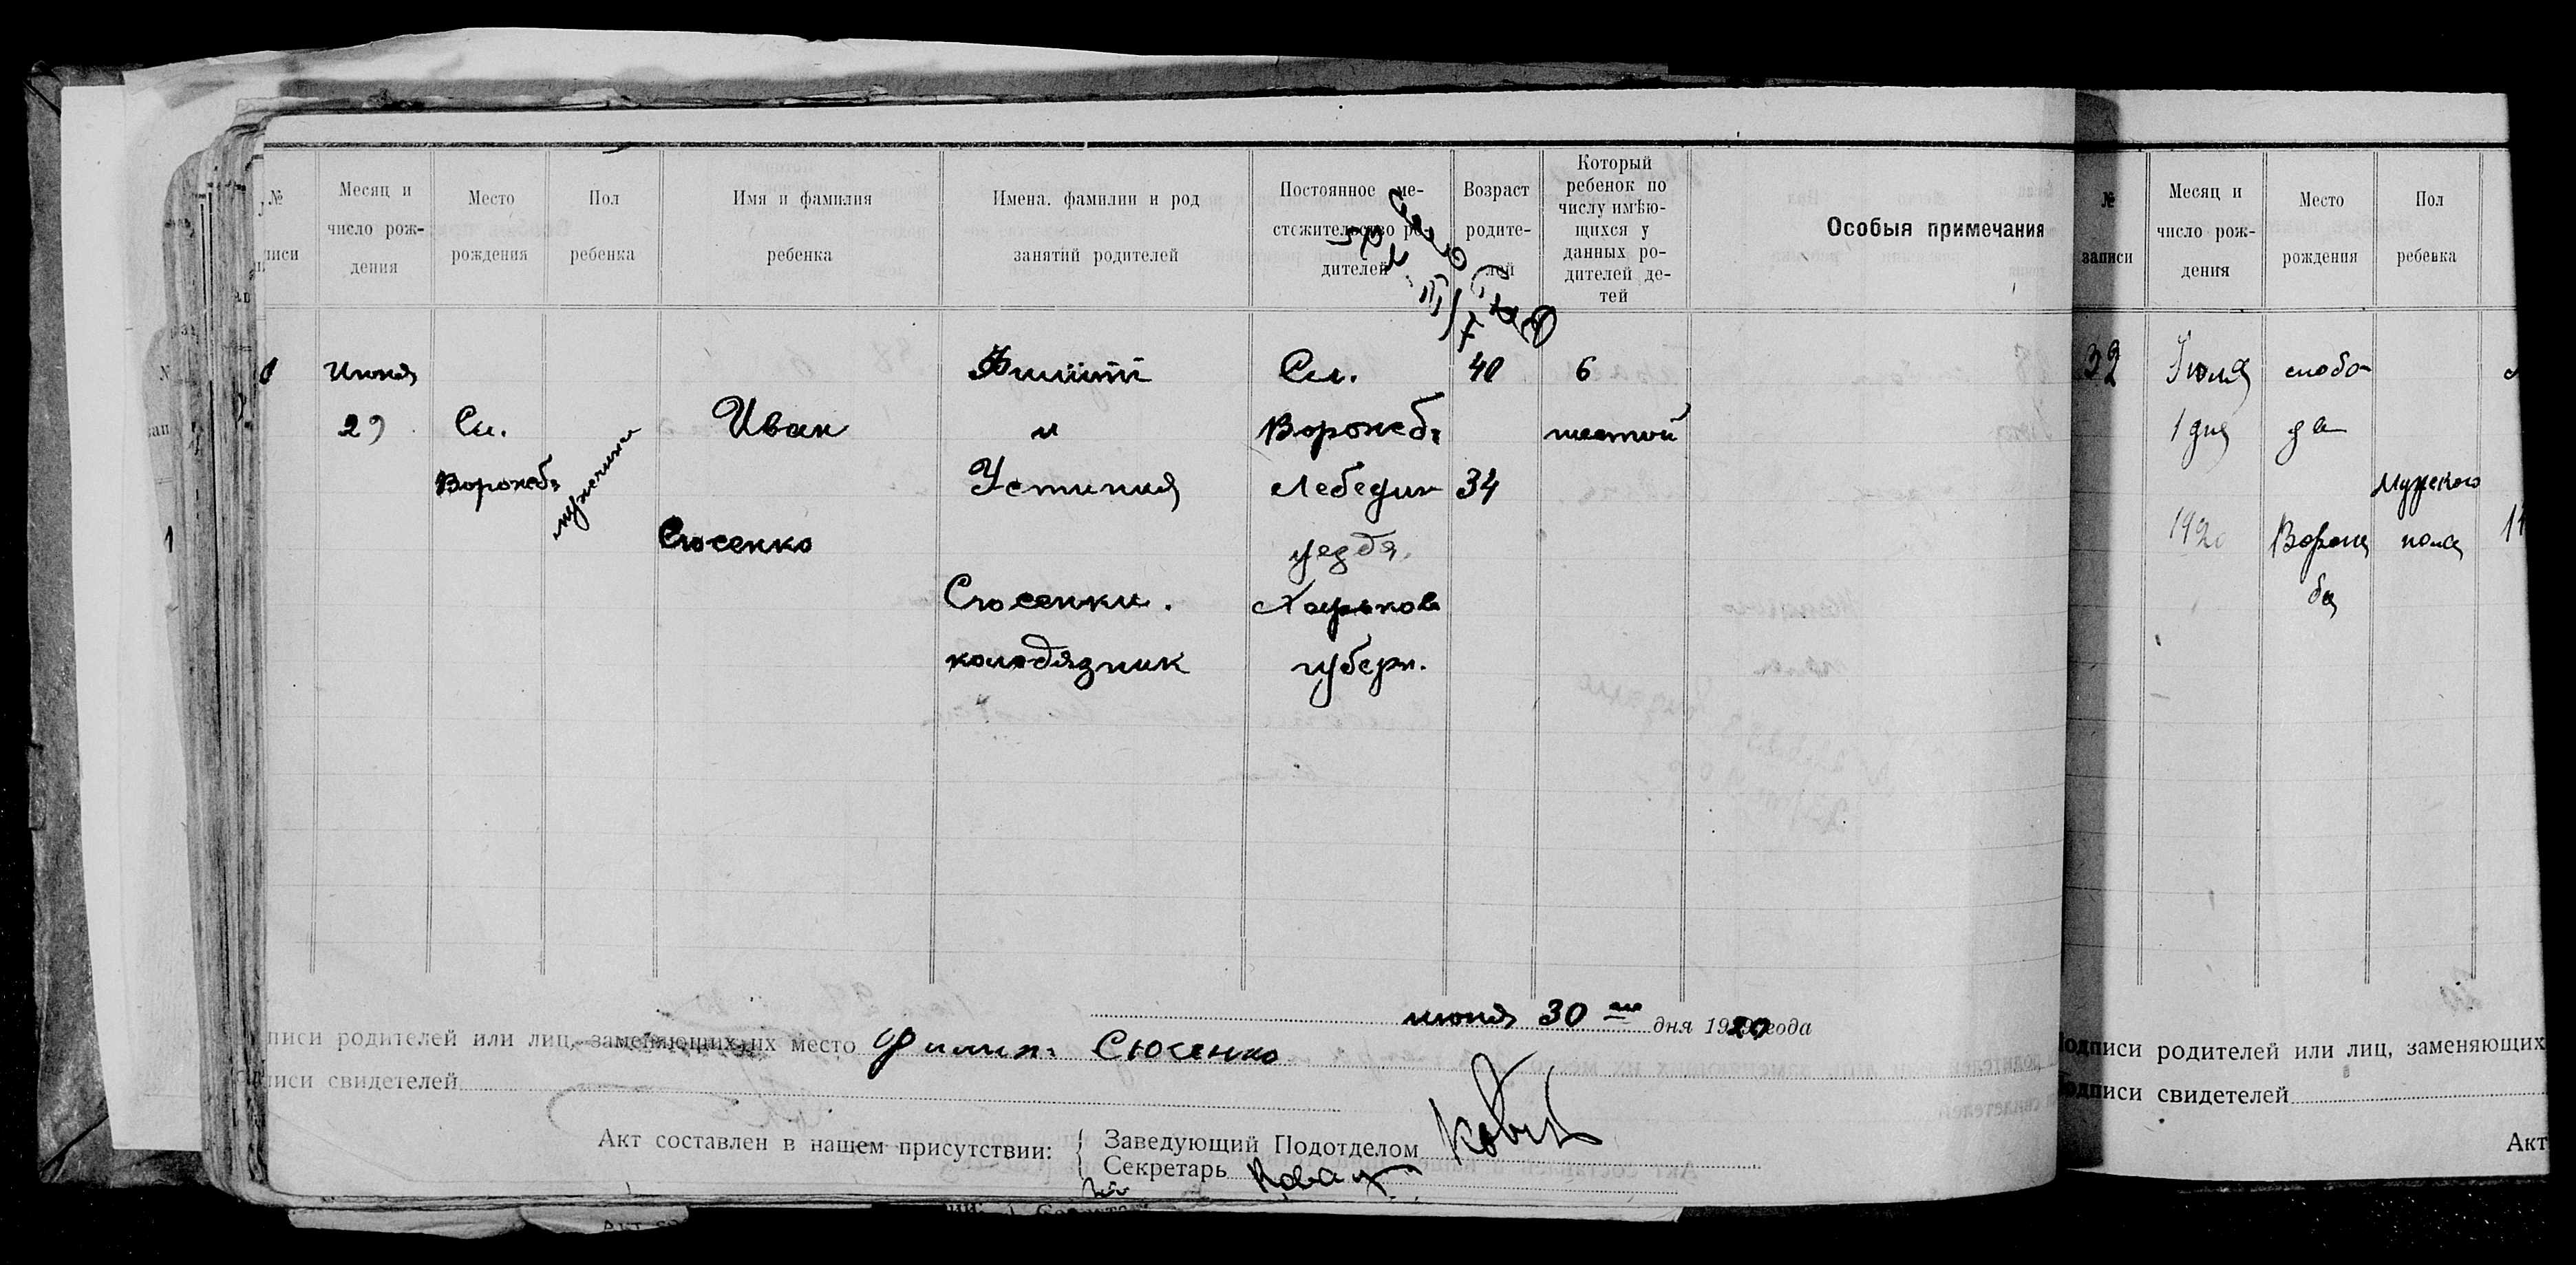 №
Месяц и
число рож-
дения
Место
рождения
Пол
ребенка
Имя и фамилия
ребенка
Имена. фамилии и род
занятий родителей
Постоянное ме-
стожительство ро-
дителей
Возраст
родите-
лей
Который
ребенок по
числу имѣю-
щихся у
данных ро-
дителей де-
тей
Особыя примечания
Июня
29
Сл.
Ворожеб.
мужчина
Иван
Сюсенко
Филипп
и
Устиния
Сюсенки.
колодязник
Сл.
Ворожеб.
Лебедин
уездя.
Харьков
губерн.
40
34
6
шестой
июня 30 го дня 1920 года
писи родителей или лиц, заменяющих их место Филип Сюсенко
писи свидетелей
Акт составлен в нашем присутствии:
Заведующий Подотделом
Секретарь
№
записи
Месяц и
число рож-
дения
Место
рождения
Пол
ребенка
32
Июля
1 дня
1920
слобо-
да
Ворож
ба
Мужского
пола
Подписи родителей или лиц, заменяющих
Подписи свидетелей
Акт